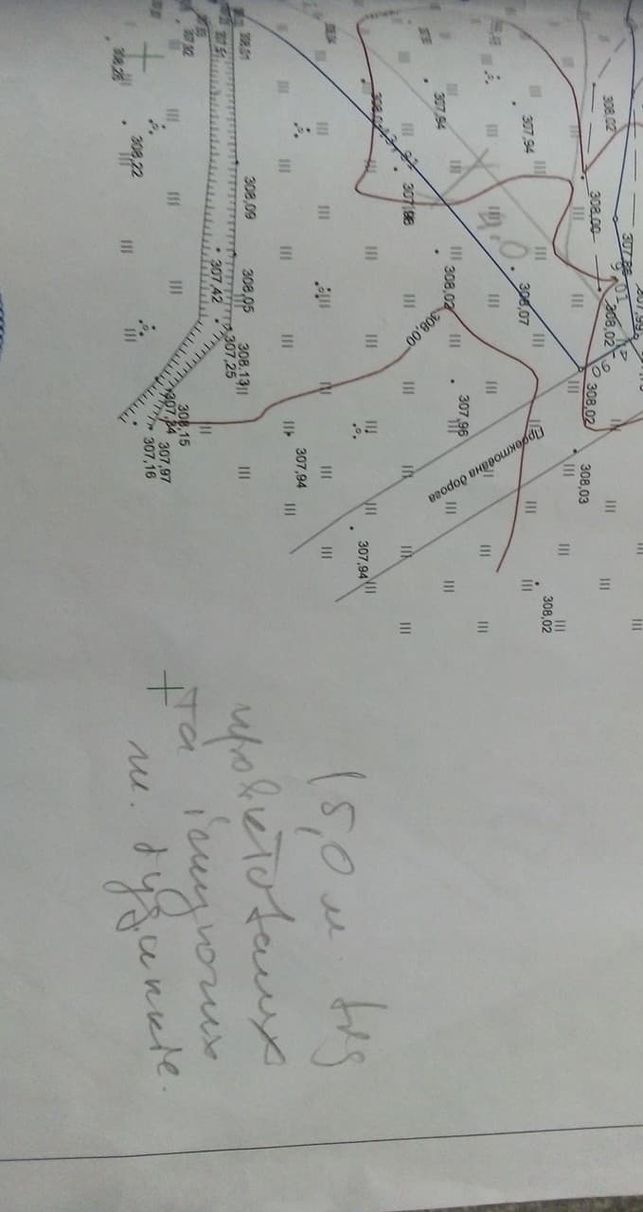 308,02
308,00
308,02
308,02
308,03
308,02
307,94
307,94
307,98
308,02
308,07
308,00
307,96
307,94
307,94
308,09
308,05
308,13
307,42
307,25
308,15
307,84
307,97
307,16
308,22
308,26
4,0
Проектована дорога
15,0 м від
проектованих
та існуючих
ж. будинків.